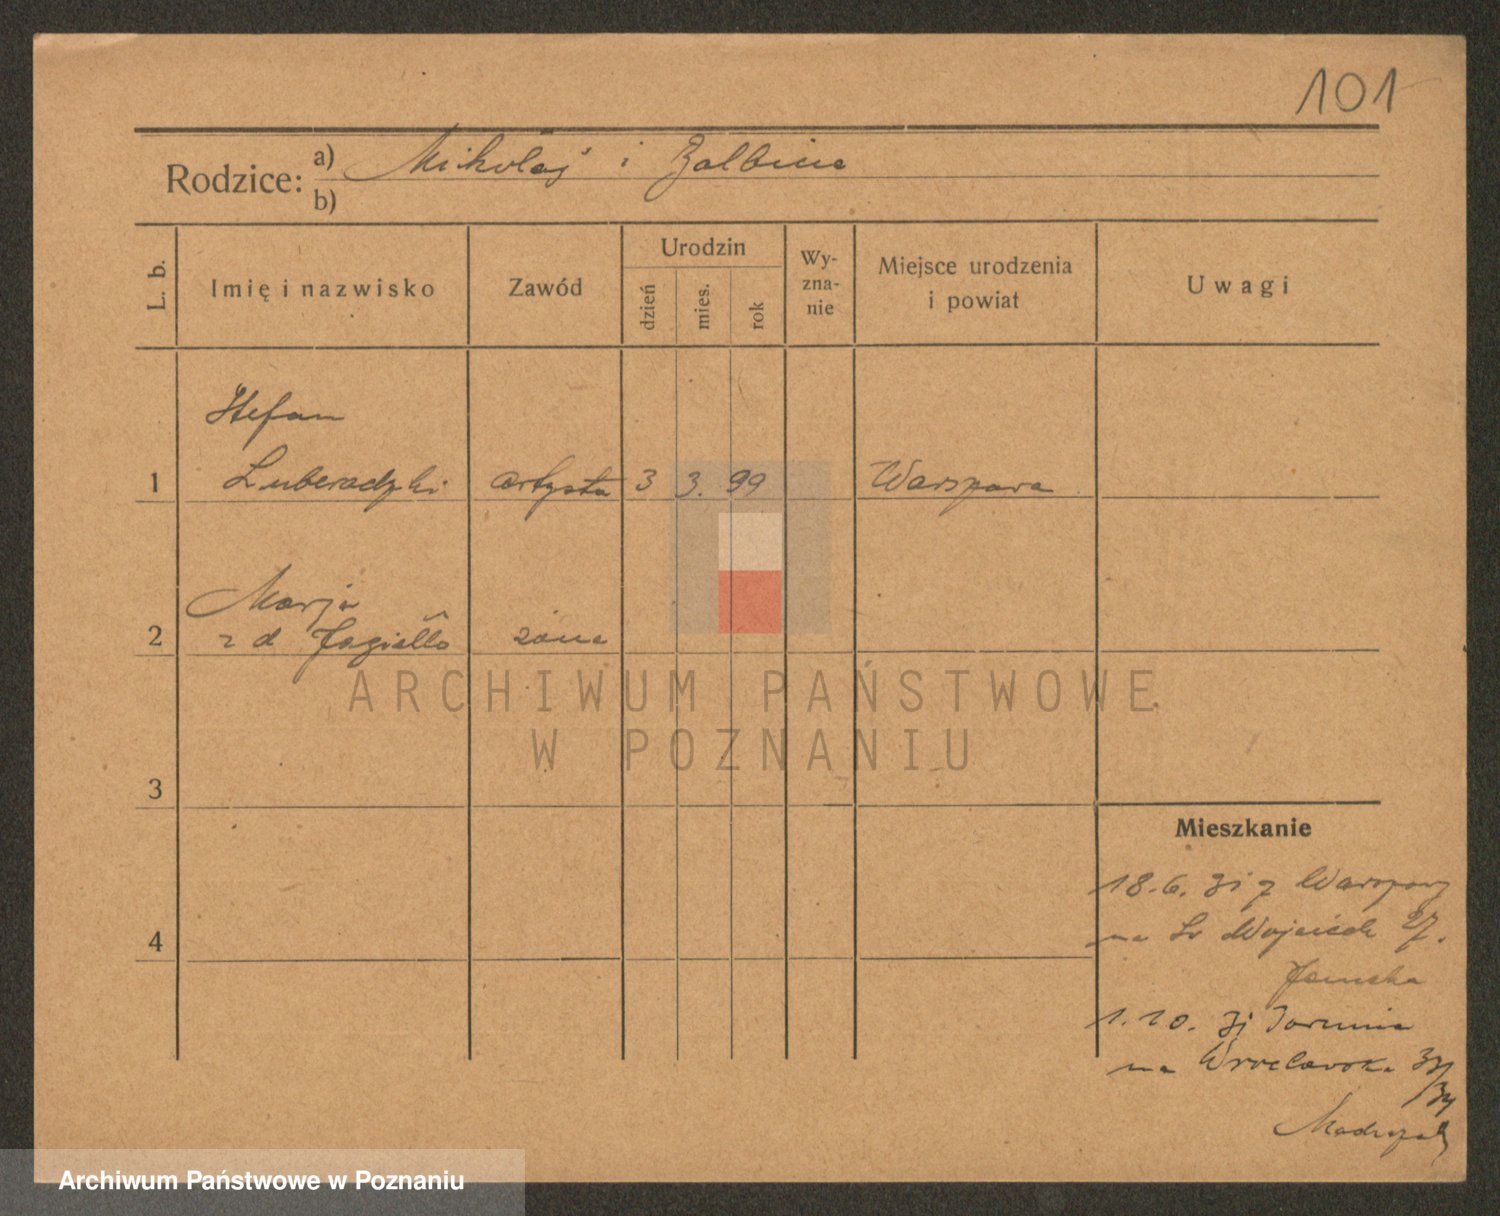 101
Rodzice:
a) Mikołaj i Balbina
b)
L. b.
Imię i nazwisko
Zawód
Urodzin
dzień
mies.
rok
Wy-
zna-
nie
Miejsce urodzenia
i powiat
Uwagi
Stefan
1 Luberadzki artysta 3 3. 99 Warszawa
Marja
2 z d Jagiełło żona
3
4
Mieszkanie
18.6. 31 z Warszawy
na Św Wojciech 27.
1.10. 31 Torunia
na Wrocławska 33/34
ARCHIWUM PAŃSTWOWE
W POZNANIU
Archiwum Państwowe w Poznaniu